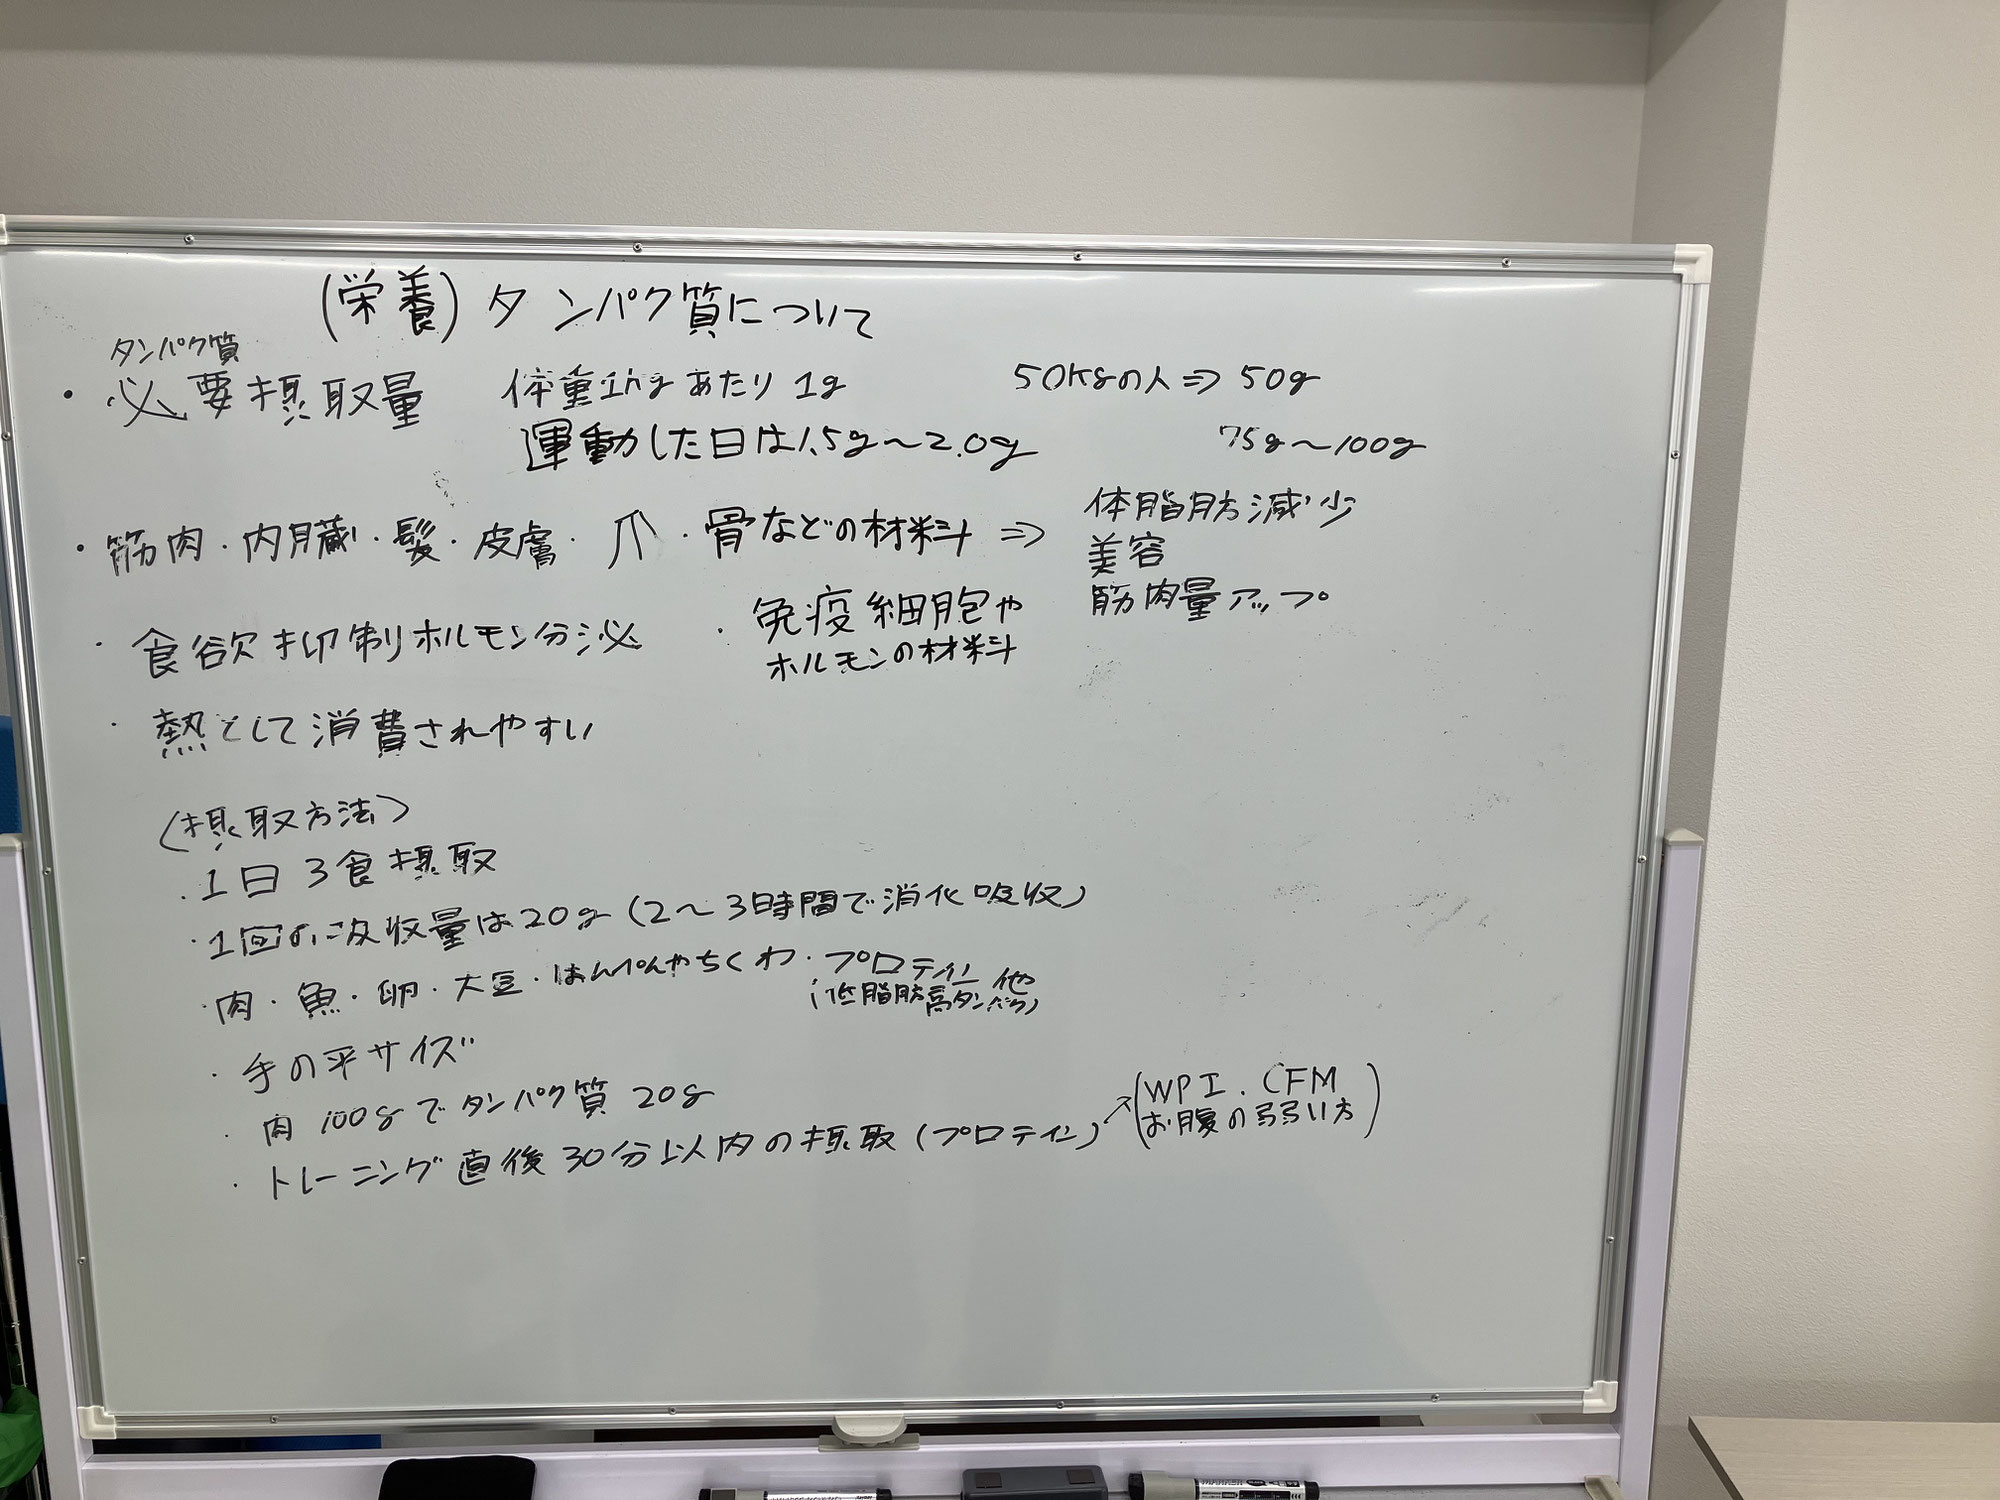 (栄養) タンパク質について
タンパク質
・必要摂取量 体重1kgあたり 1g 50kgの人⇒50g
運動した日は1.5g〜2.0g 75g〜100g
・筋肉・内臓・髪・皮膚・爪・骨などの材料 ⇒ 体脂肪減少
美容
筋肉量アップ
・食欲抑制ホルモン分泌 ・免疫細胞や
ホルモンの材料
・熱として消費されやすい
(摂取方法)
・1日3食摂取
・1回の吸収量は20g (2〜3時間で消化吸収)
・肉・魚・卵・大豆・はんぺんやちくわ・プロテイン 他
(低脂肪高タンパク)
・手の平サイズ
・肉100gでタンパク質20g
・トレーニング直後30分以内の摂取(プロテイン)↗(WPI.CFM
お腹の弱い方)